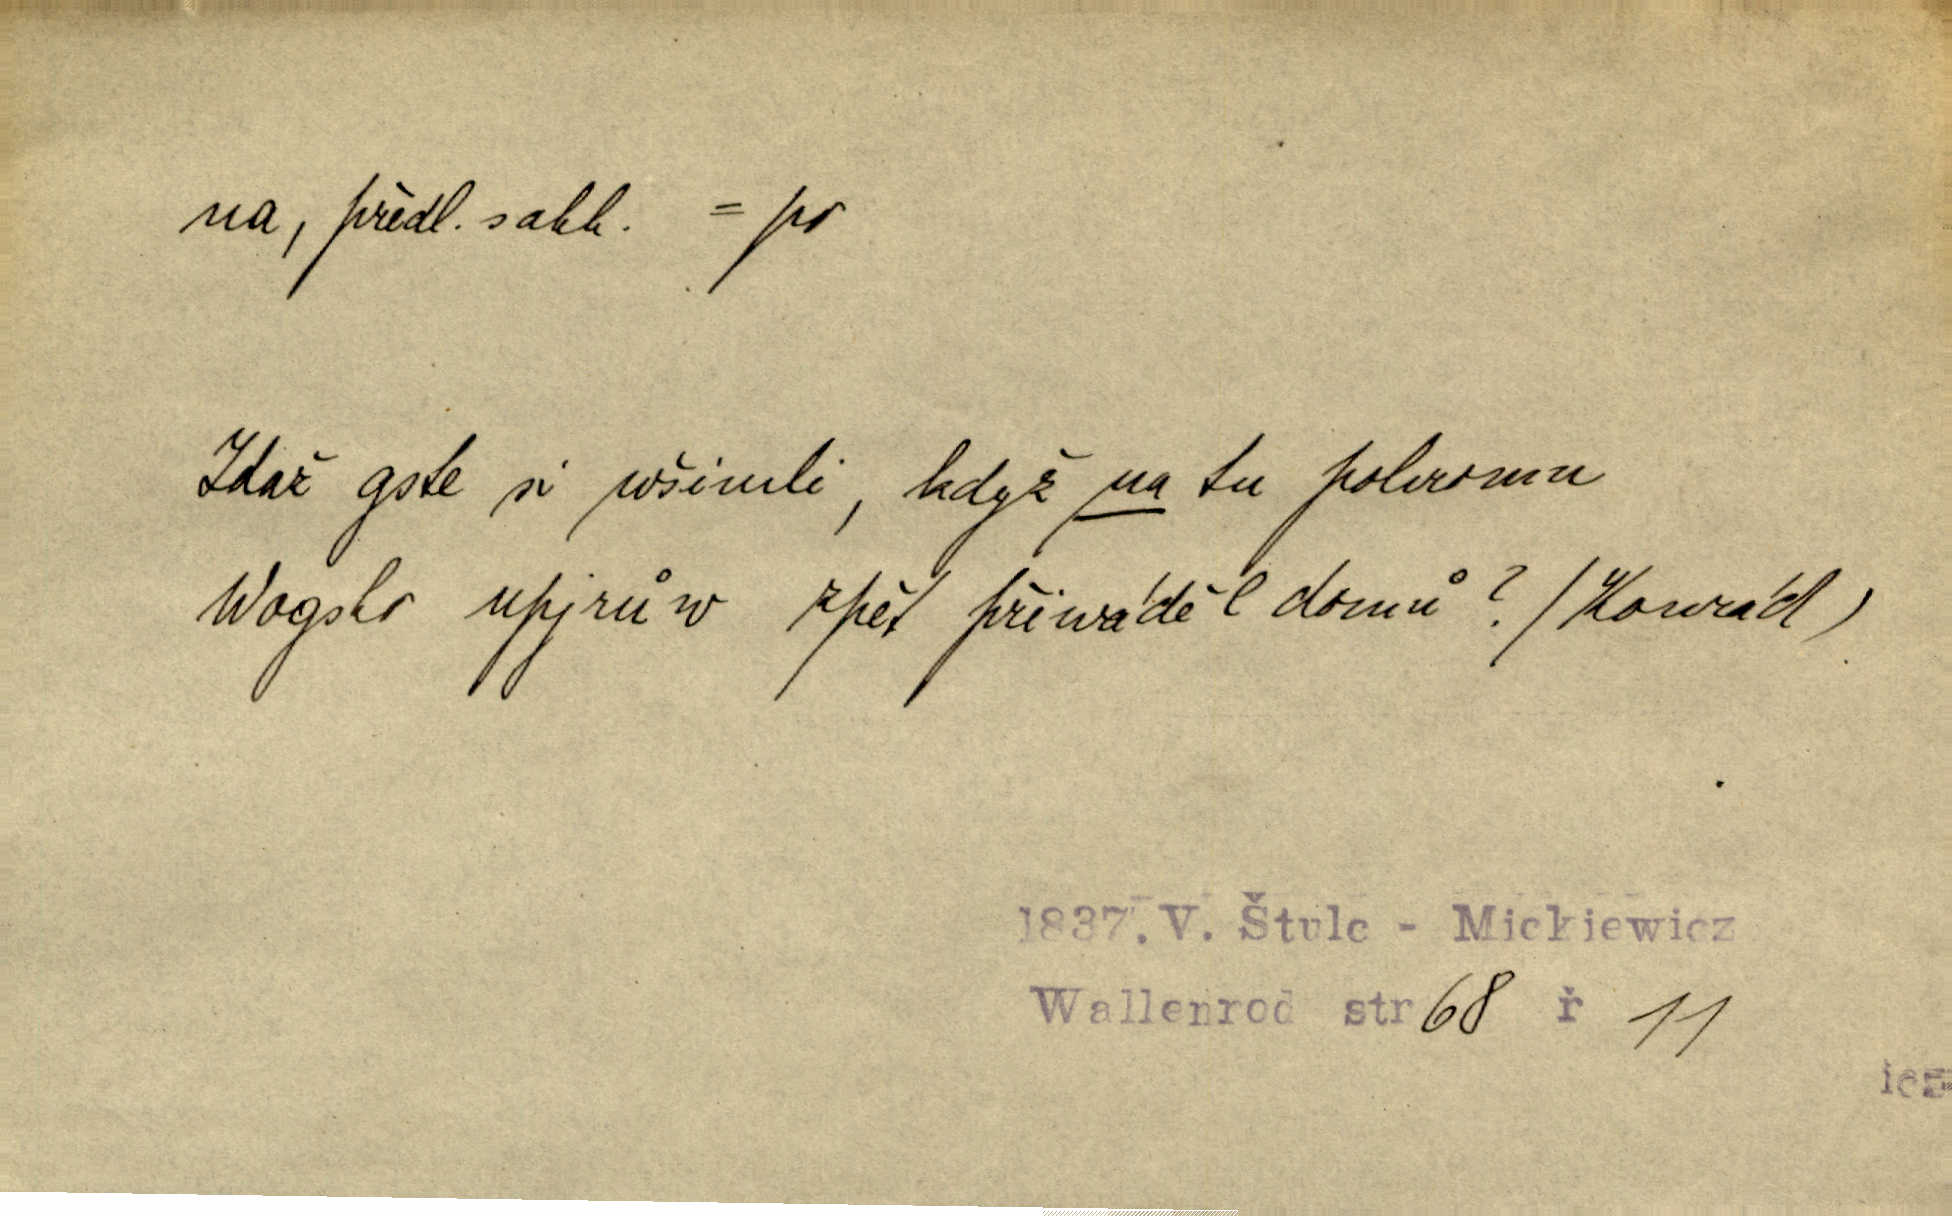 na, předl. s akk. = po
Zdaž gste si wšimli, když na tu pohromu
Wogsko upjrůw zpět přiwáděl domů? /Konrád)
1837. V. Štulc - Mickiewicz
Wallenrod str 68 ř 11